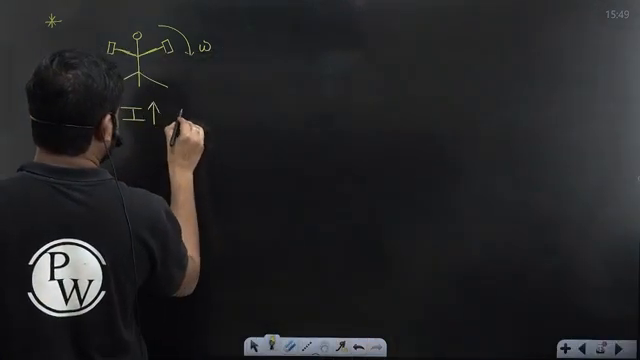 15:49
*
ω
I ↑
PW